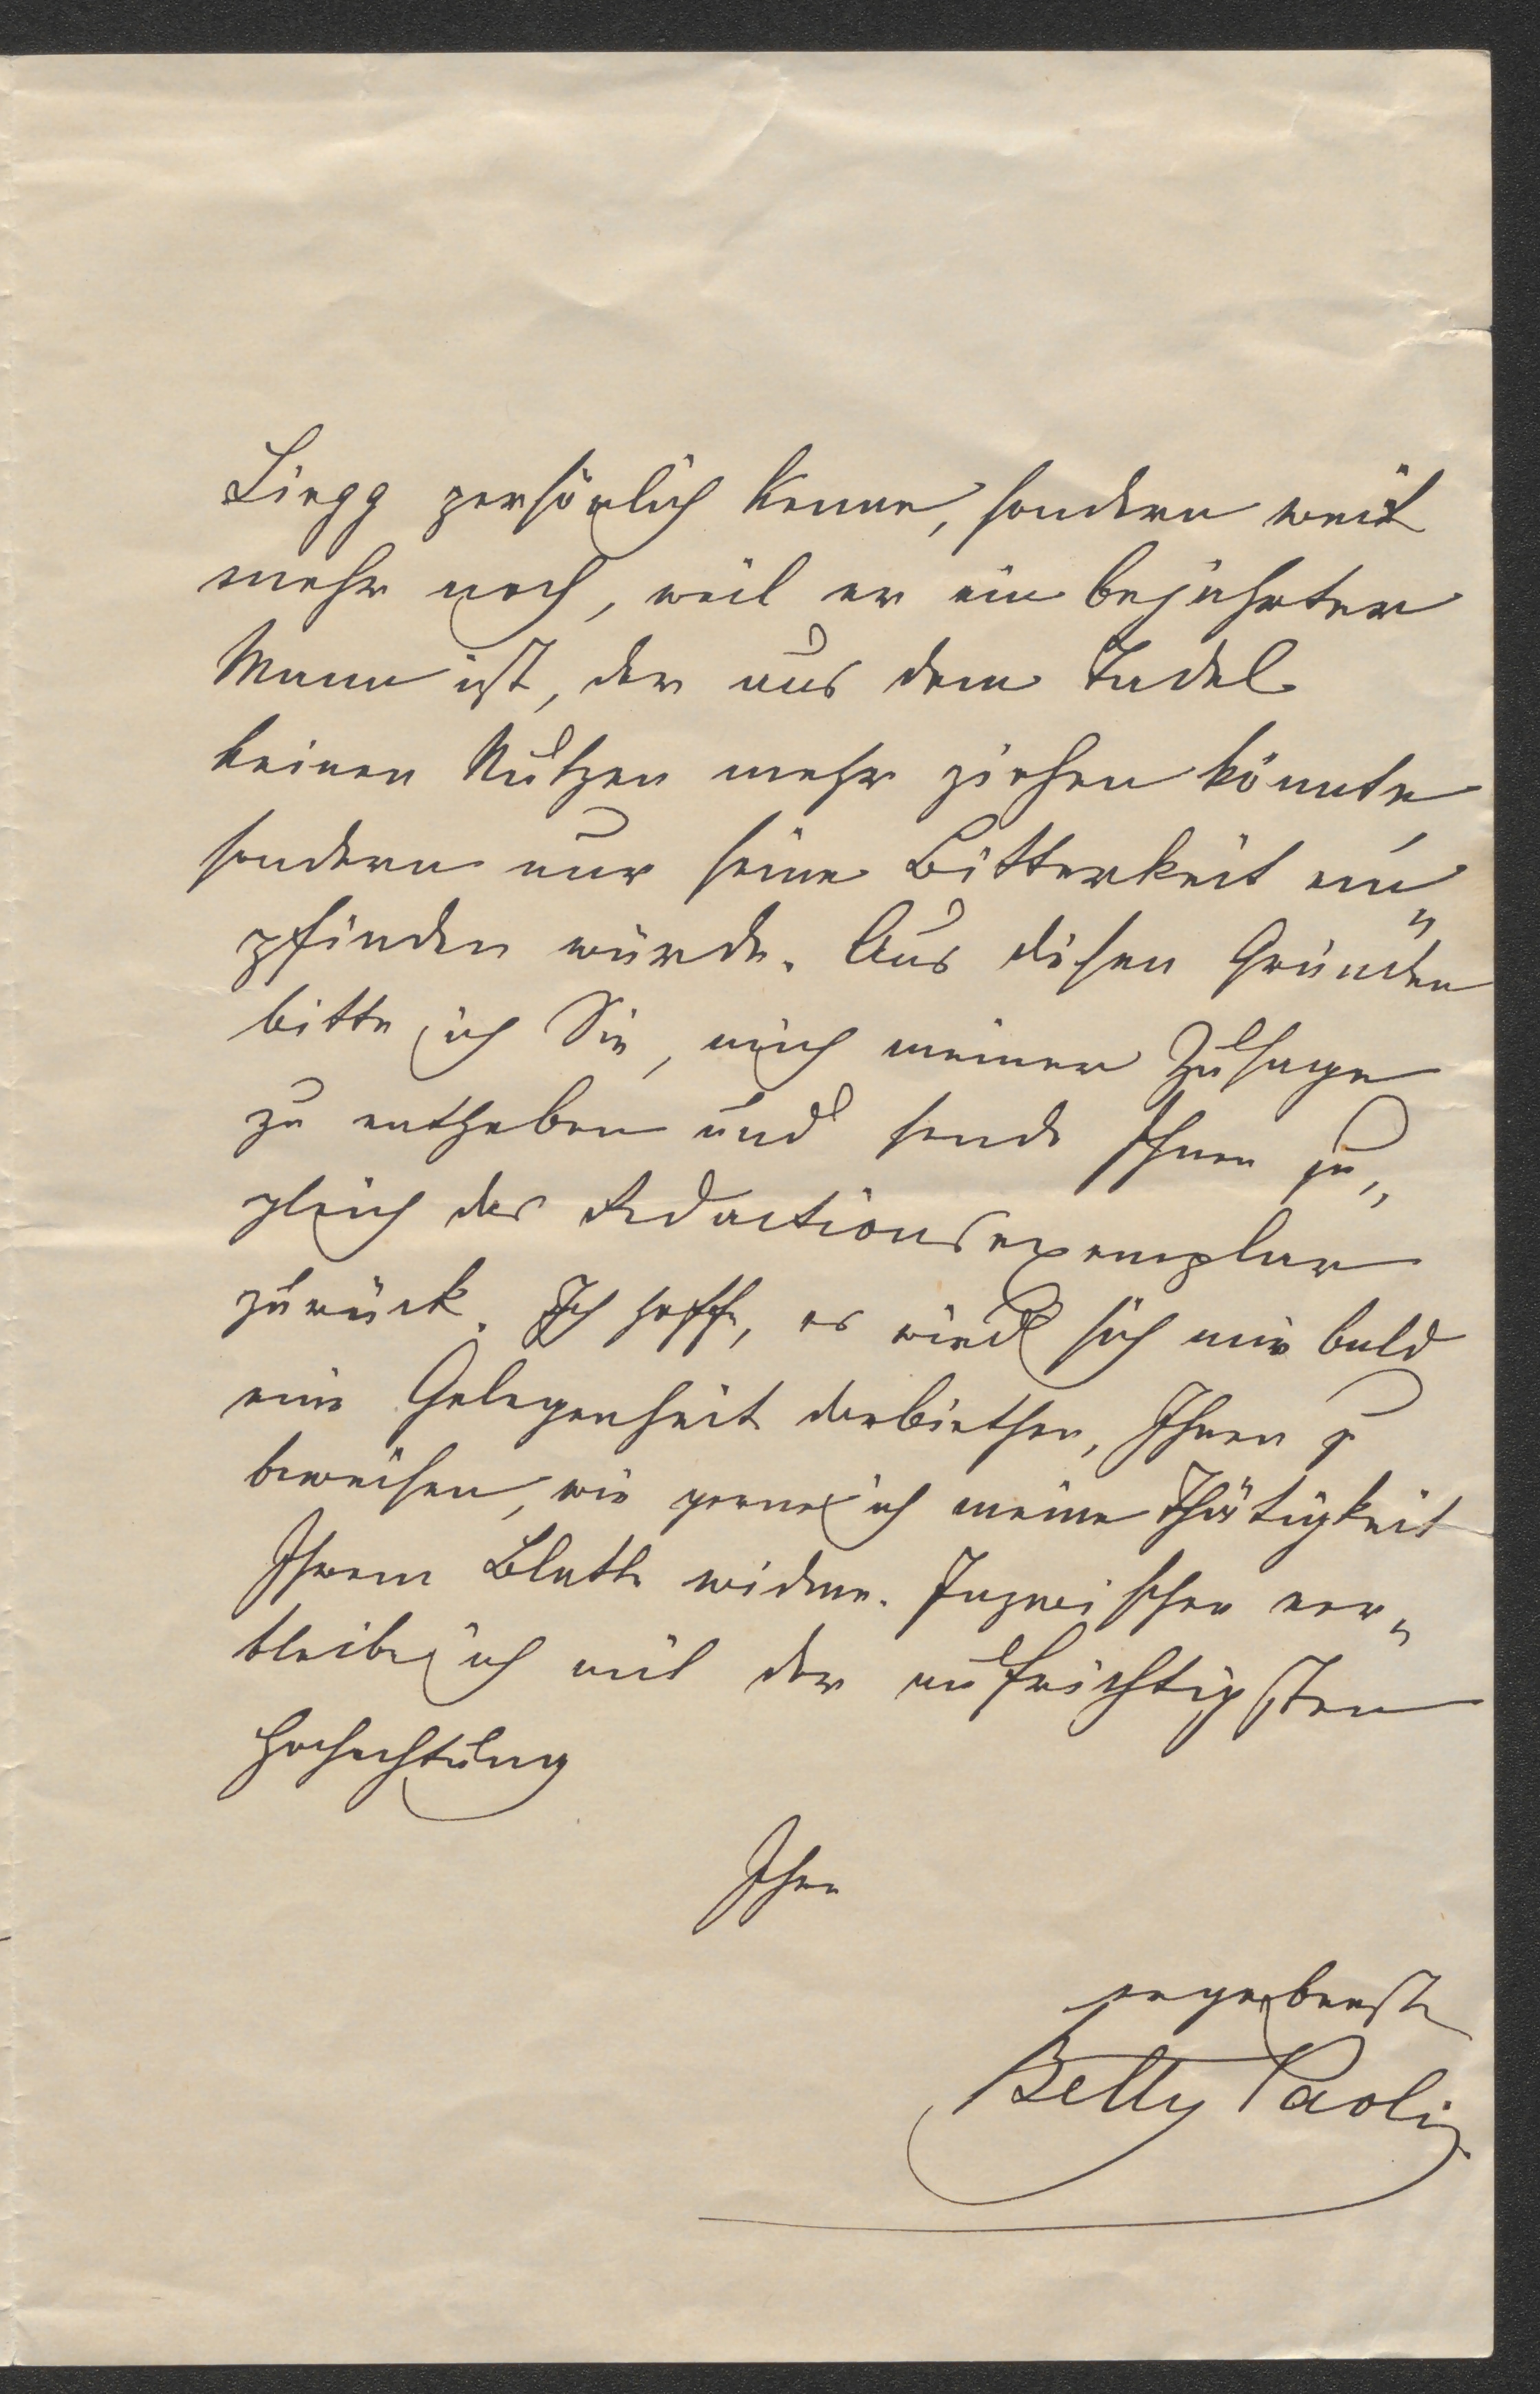 Lingg persönlich kenne, sondern weit
mehr noch, weil er ein bejahrter
Mann ist, der aus dem Tadel
keinen Nutzen mehr ziehen könnte
sondern nur seine Bitterkeit em„
pfinden würde. Aus diesen Gründen
bitte ich Sie, mich meiner Zusage
zu entheben und sende Ihnen zu„
gleich das Redactionsexemplar
zurück. Ich hoffe, es wird sich mir bald
eine Gelegenheit darbiethen, Ihnen zu
beweisen, wie gerne ich meine Thätigkeit
Ihrem Blatte widme. Inzwischen ver„
bleibe ich mit der aufrichtigsten
Hochachtung
Ihre
ergebenste
Betty Paoli